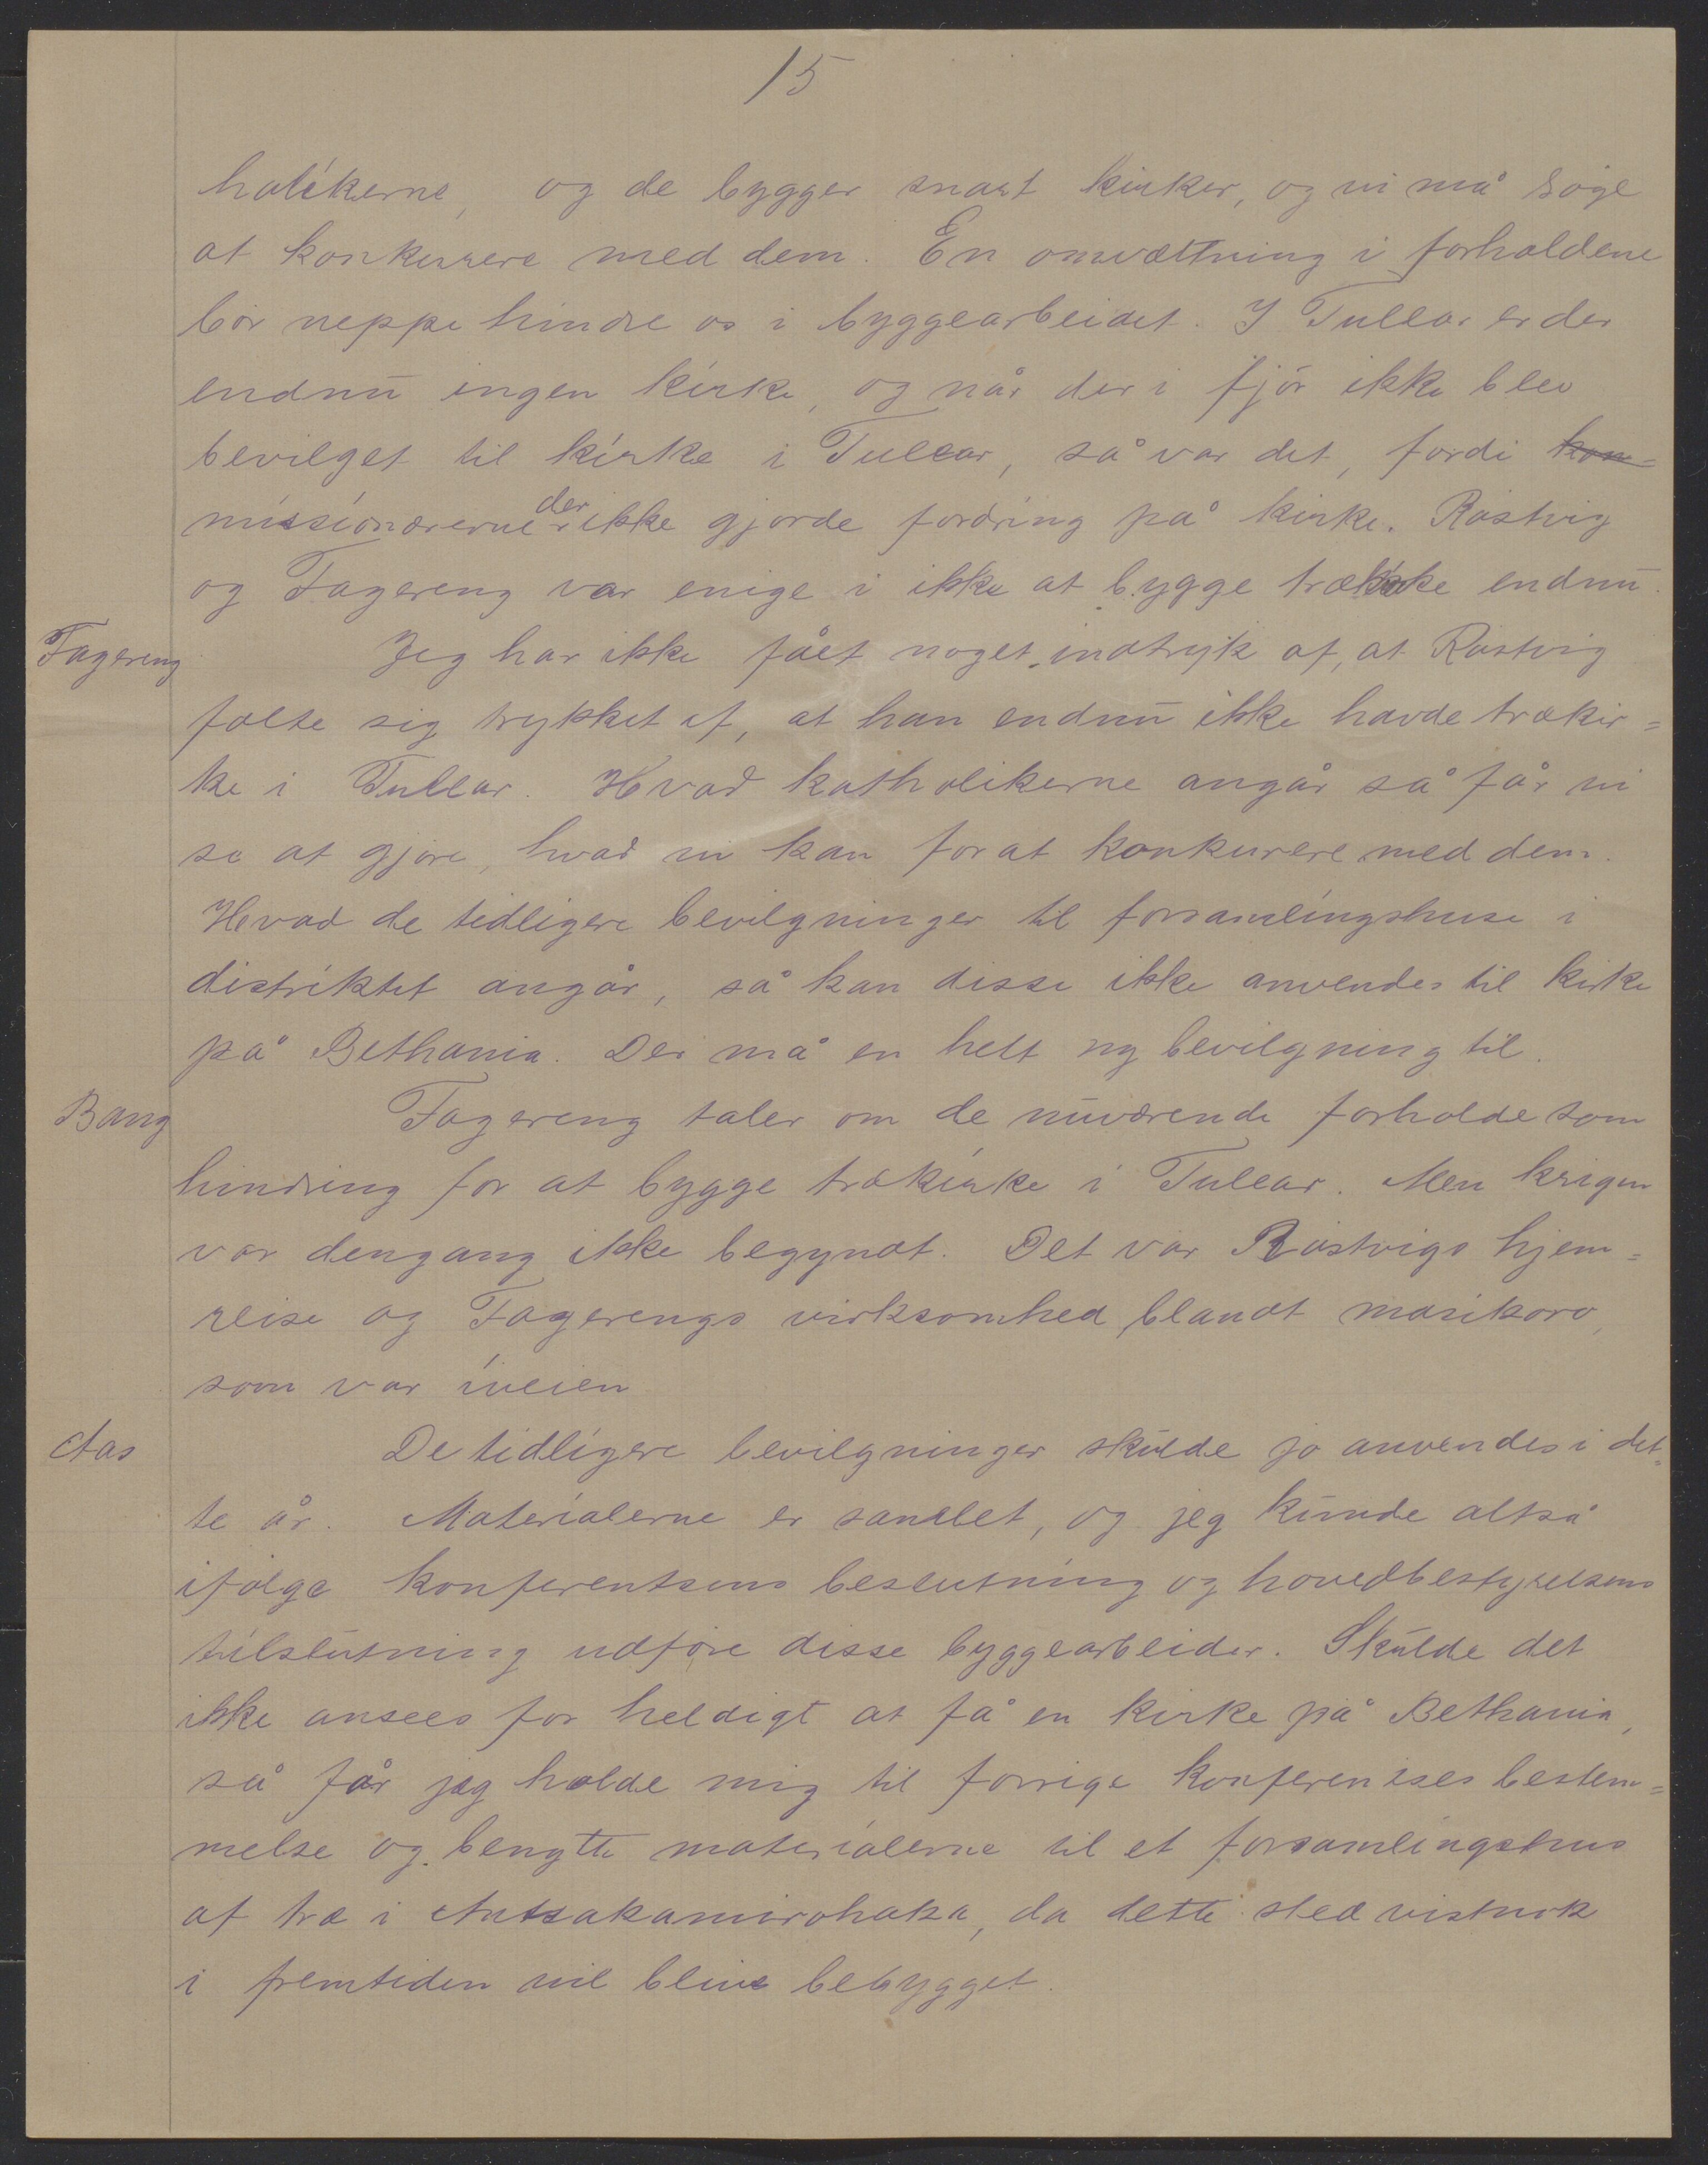 15
holikerne, og de bygger snart kirker, og vi må søge
at konkurrere med dem. En omvæltning i forholdene
bør neppe hindre os i byggearbeidet. I Tullear er der
endnu ingen kirke, og når der i fjor ikke blev
bevilget til kirke i Tullear, så var det, fordi kon=
missionærerne der ikke gjorde fordring på kirke. Röstvig
og Fagereng var enige i ikke at bygge trækirke endnu.
Fagereng Jeg har ikke fået noget indtryk af, at Röstvig
følte sig trykket af, at han endnu ikke havde trækir=
ke i Tullear. Hvad katholikerne angår så får vi
se at gjøre, hvad vi kan for at konkurere med dem.
Hvad de tidligere bevilgninger til forsamlingshuse i
distriktet angår, så kan disse ikke anvendes til kirke
på Bethania. Der må en helt ny bevilgning til.
Bang Fagereng taler om de nuværende forholde som
hindring for at bygge trækirke i Tullear. Men krigen
var dengang ikke begyndt. Det var Röstvigs hjem=
reise og Fagerengs virksomhed blandt masikoro,
som var iveien
Aas De tidligere bevilgninger skulde jo anvendes i det=
te år. Materialerne er samlet, og jeg kunde altså
ifølge konferentsens beslutning og hovedbestyrelsens
tilslutning udføre disse byggearbeider. Skulde det
ikke ansees for heldigt at få en kirke på Bethania,
så får jeg holde mig til forrige konferentses bestem=
melse og benytte materialerne til et forsamlingshus
af træ i Antsakamirohaka, da dette sted vistnok
i fremtiden vil blive bebygget.